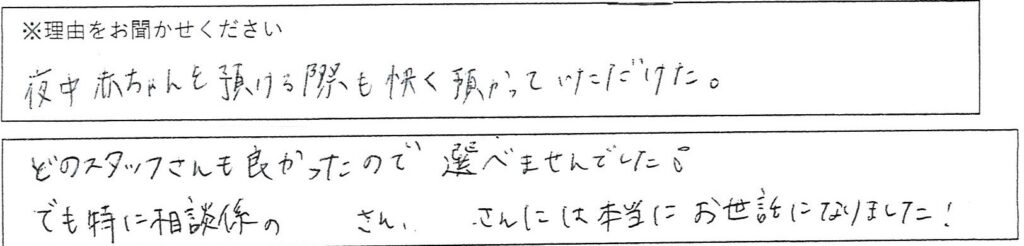 ※理由をお聞かせください
夜中赤ちゃんを預ける際も快く預かっていただけた。
どのスタッフさんも良かったので選べませんでした。
でも特に相談係の さん、 さんには本当にお世話になりました!